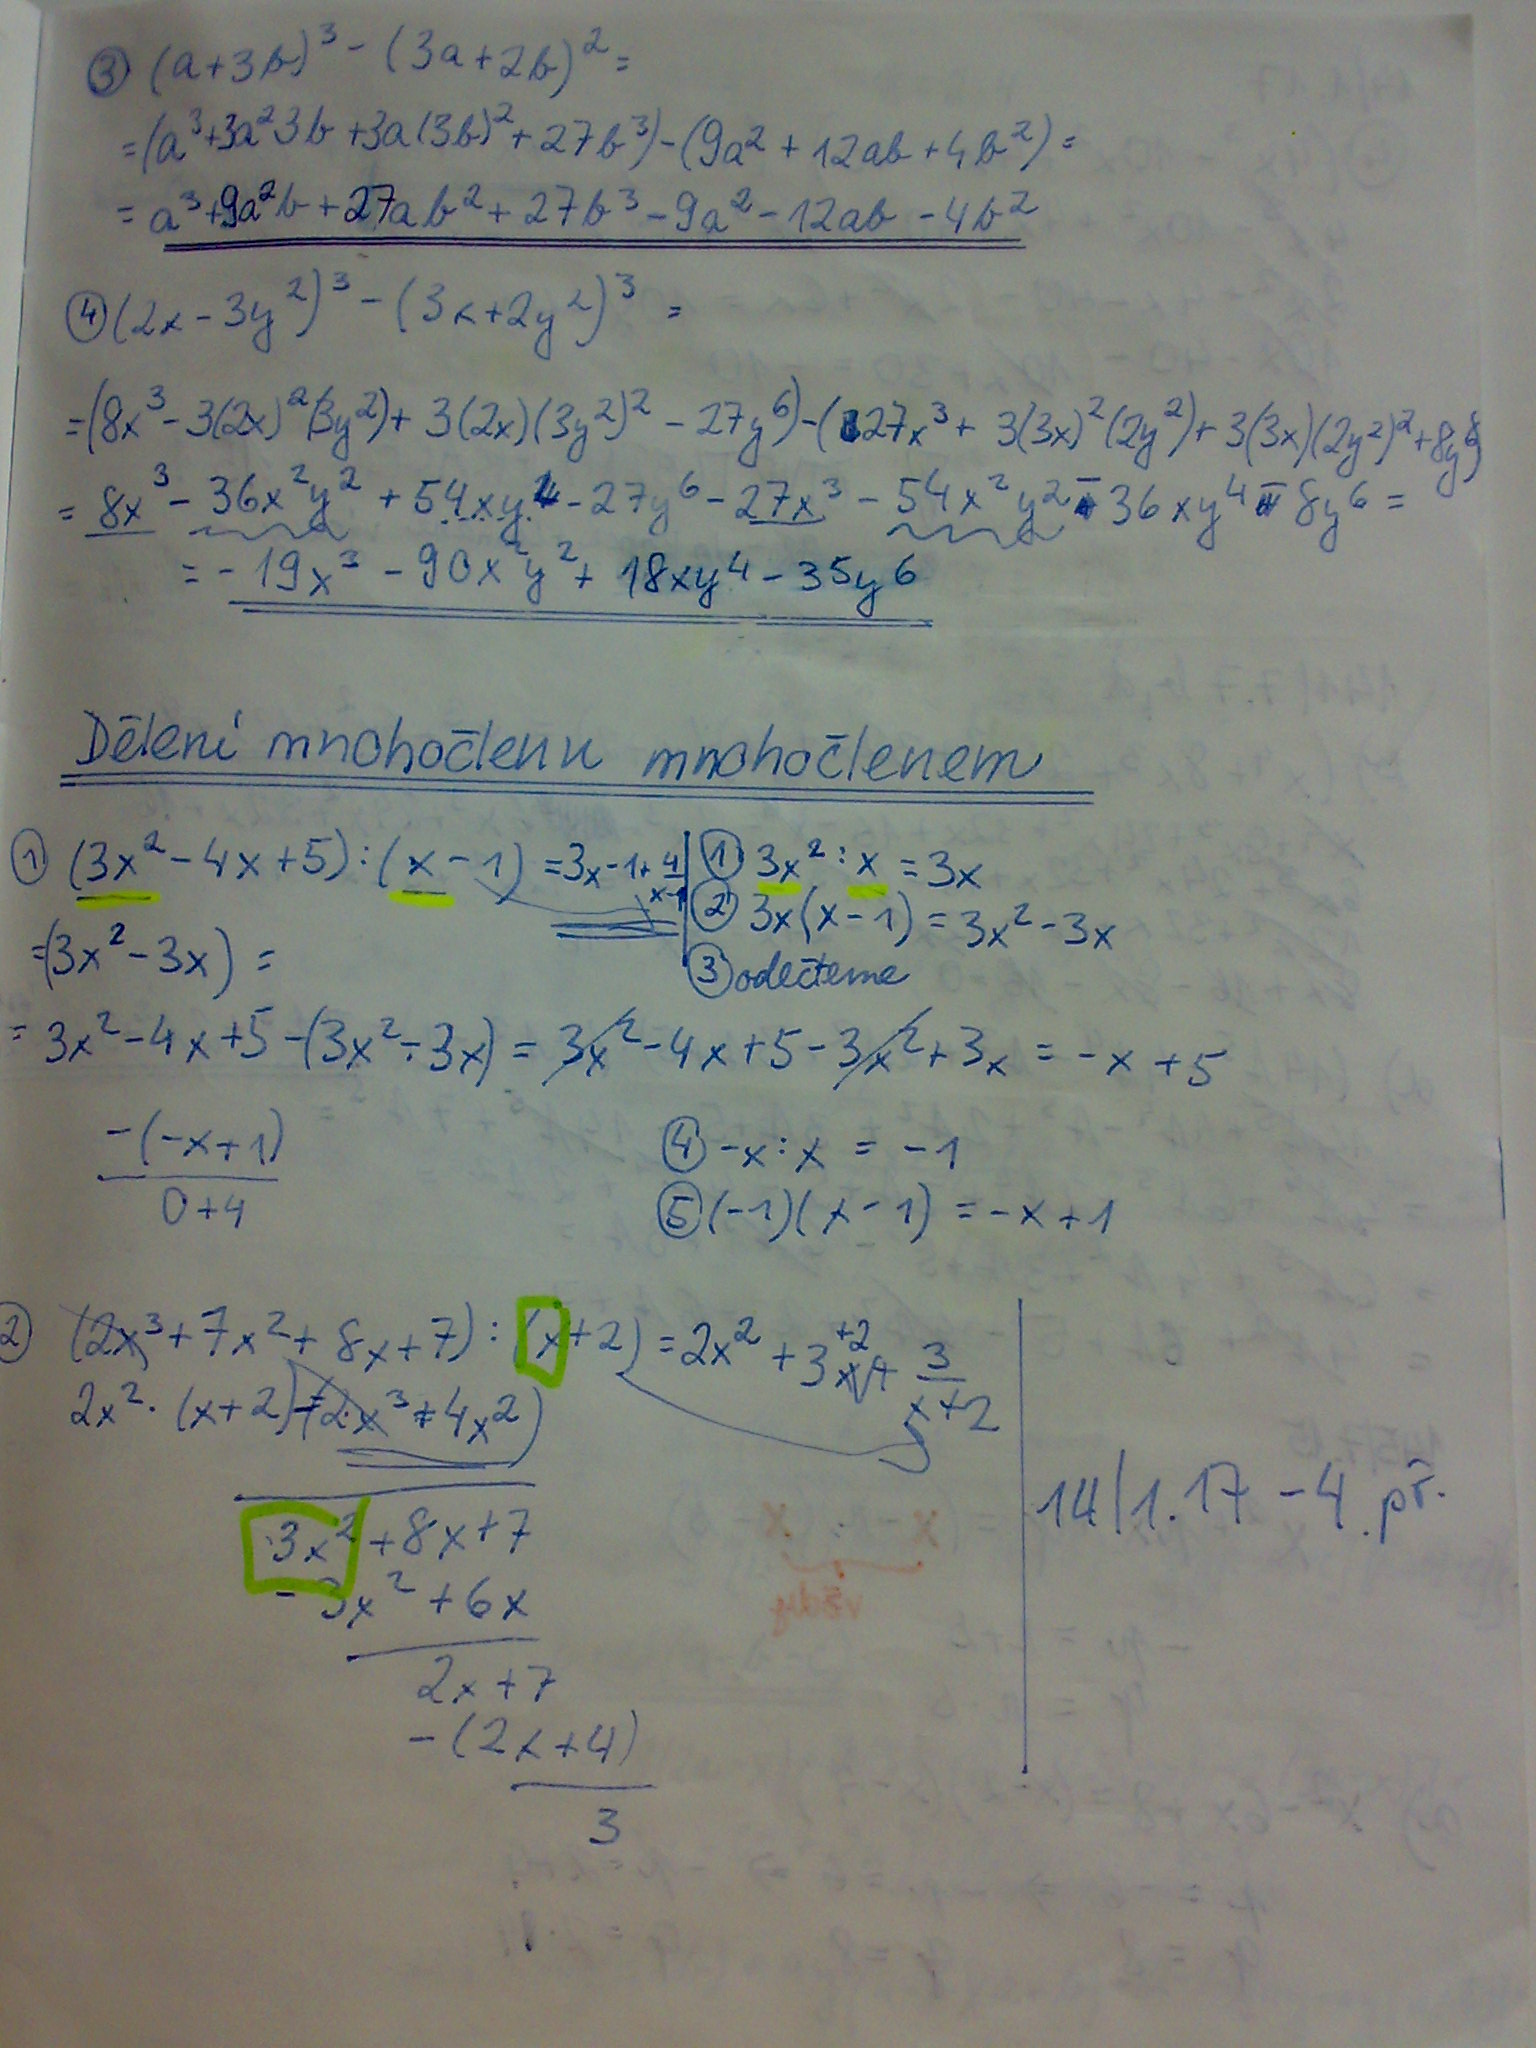 ③ (a+3b)³ - (3a+2b)² =
= (a³+3a²3b+3a(3b)²+27b³)-(9a²+12ab+4b²) =
= a³+9a²b+27ab²+27b³-9a²-12ab-4b²
④ (2x-3y²)³ - (3x+2y²)³ =
= (8x³-3(2x)²(3y²)+3(2x)(3y²)²-27y⁶)-(27x³+3(3x)²(2y²)+3(3x)(2y²)²+8y⁶)
= 8x³-36x²y²+54xy⁴-27y⁶-27x³-54x²y²-36xy⁴-8y⁶ =
= -19x³-90x²y²+18xy⁴-35y⁶
Dělení mnohočlenu mnohočlenem
① (3x²-4x+5):(x-1) = 3x-1+4/(x-1)
① 3x²:x = 3x
② 3x(x-1) = 3x²-3x
③ odečteme
=(3x²-3x) =
= 3x²-4x+5-(3x²-3x) = 3x²-4x+5-3x²+3x = -x+5
-(-x+1)
0+4
④ -x:x = -1
⑤ (-1)(x-1) = -x+1
② (2x³+7x²+8x+7):(x+2) = 2x²+3x+2+3/(x+2)
2x²·(x+2) -(2x³+4x²)
3x²+8x+7
-3x²+6x
2x+7
-(2x+4)
3
14/1.17 - 4 př.